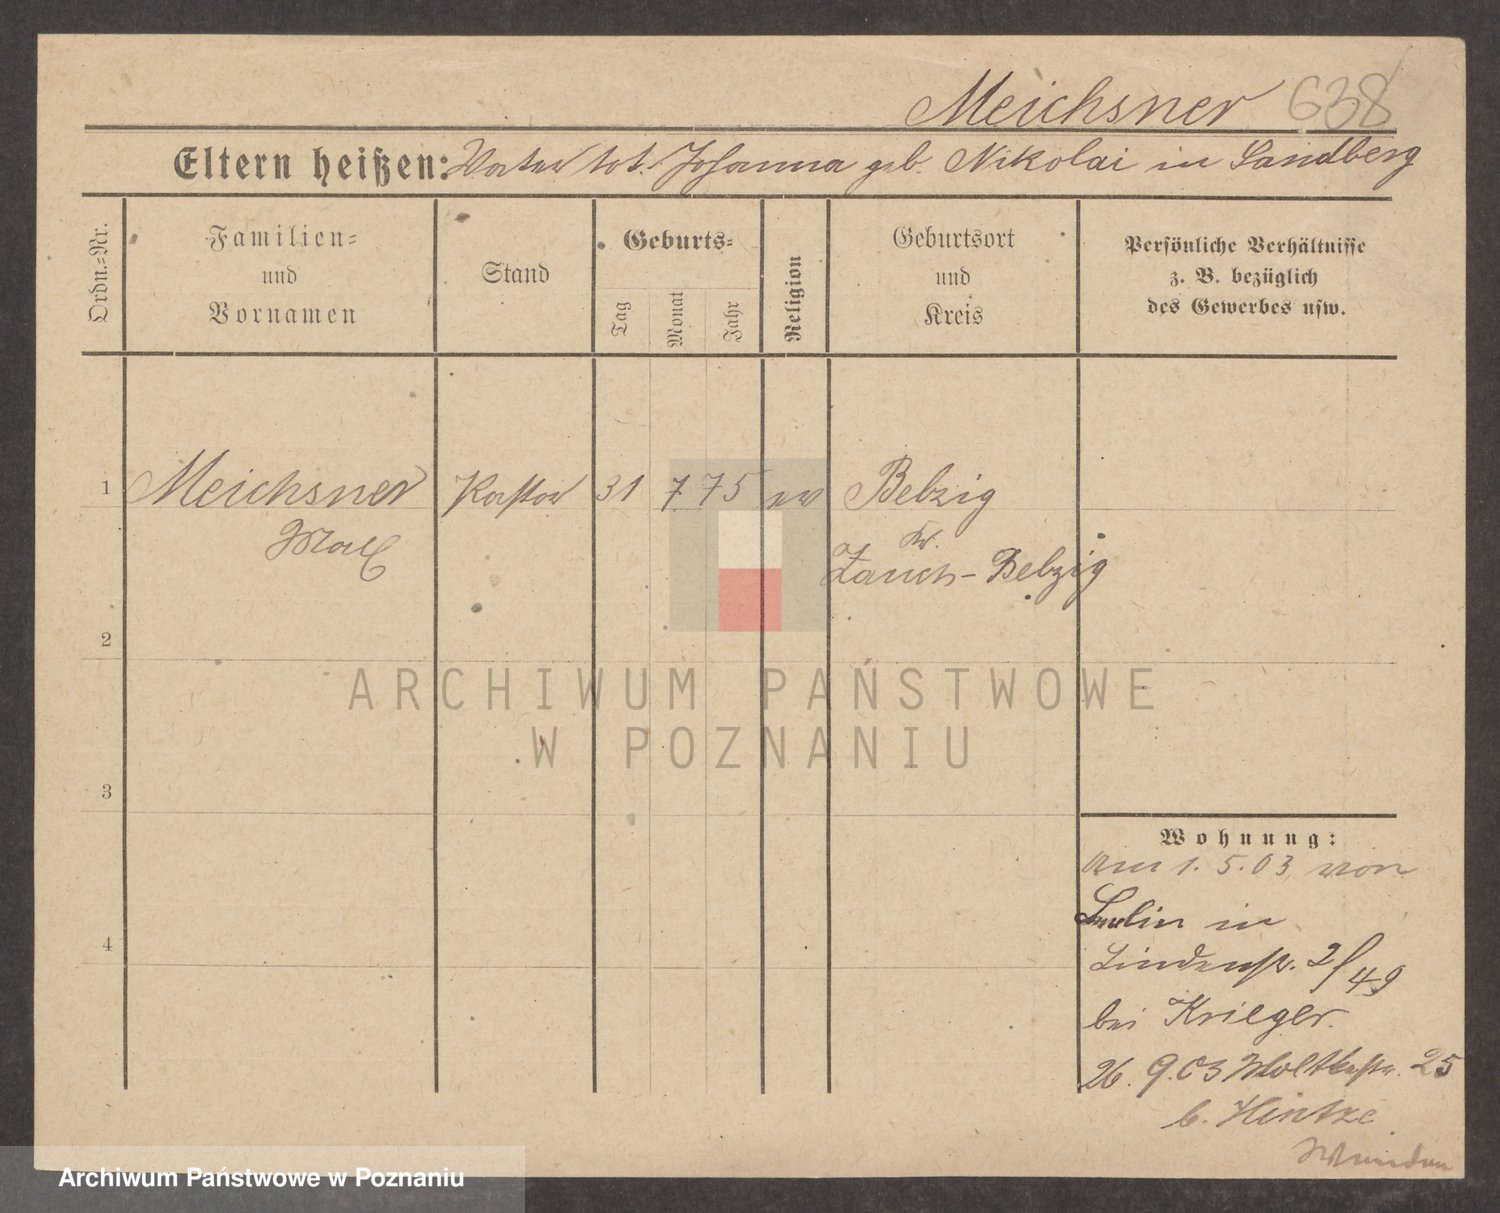 Meichsner 638
Eltern heißen: Vater tot. Johanna geb. Nikolai in Sandberg
Ordn.-Nr.
Familien-
und
Vornamen
Stand
Geburts-
Tag
Monat
Jahr
Religion
Geburtsort
und
Kreis
Persönliche Verhältnisse
z. B. bezüglich
des Gewerbes usw.
1 Meichsner Pastor 31 7. 75 ev Belzig
Max Kr.
Zauch-Belzig
2
3
4
Wohnung:
Am 1. 5. 03 von
Berlin in
Lindenstr. 2/49
bei Krieger.
26. 9. 03 Moltkestr. 25
b. Hintze
ARCHIWUM PAŃSTWOWE
W POZNANIU
Archiwum Państwowe w Poznaniu